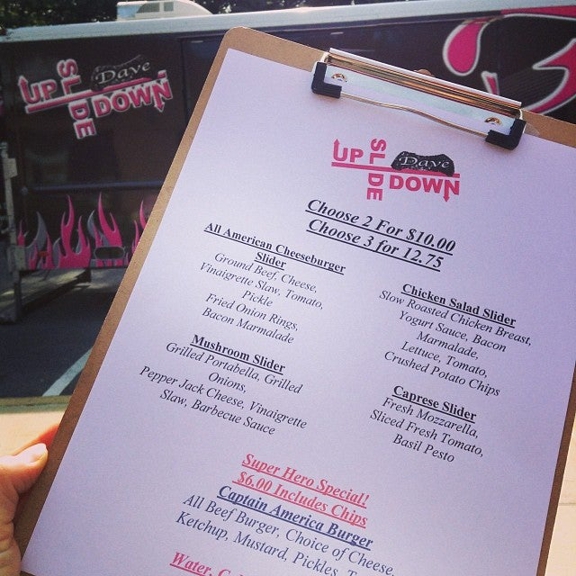 UP SLIDE Dave DOWN
UP SLIDE Dave DOWN
Choose 2 For $10.00
Choose 3 for 12.75
All American Cheeseburger
Slider
Ground Beef, Cheese,
Vinaigrette Slaw, Tomato,
Pickle
Fried Onion Rings,
Bacon Marmalade
Mushroom Slider
Grilled Portabella, Grilled
Onions,
Pepper Jack Cheese, Vinaigrette
Slaw, Barbecue Sauce
Chicken Salad Slider
Slow Roasted Chicken Breast,
Yogurt Sauce, Bacon
Marmalade,
Lettuce, Tomato,
Crushed Potato Chips
Caprese Slider
Fresh Mozzarella,
Sliced Fresh Tomato,
Basil Pesto
Super Hero Special!
$6.00 Includes Chips
Captain America Burger
All Beef Burger, Choice of Cheese,
Ketchup, Mustard, Pickles,
Water,